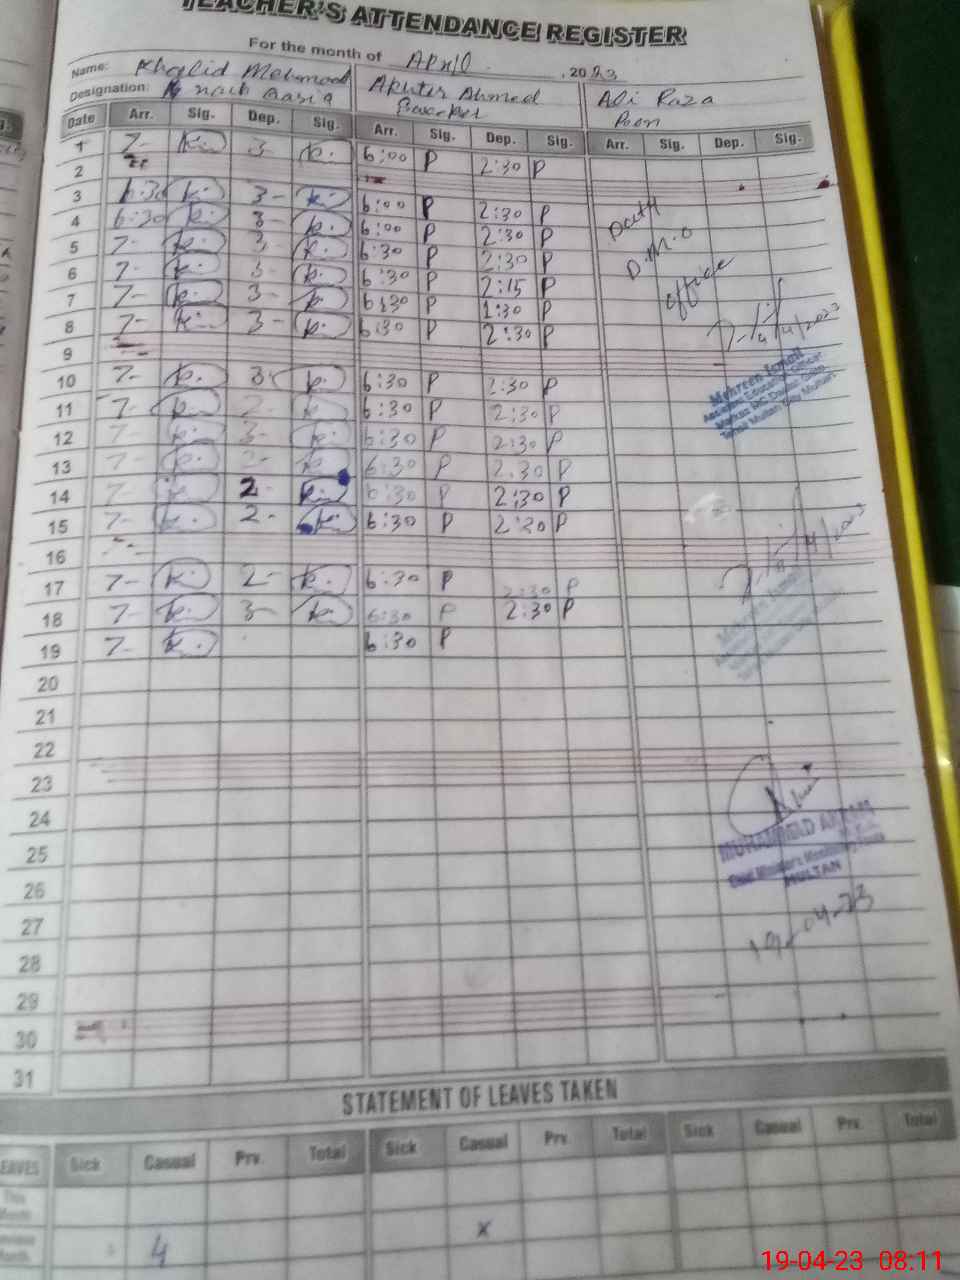 TEACHER'S ATTENDANCE REGISTER
For the month of April, 2023
Name: Khalid Mehmood Akhter Ahmed Ali Raza
Designation:
Date Arr. Sig. Dep. Sig. Arr. Sig. Dep. Sig. Arr. Sig. Dep. Sig.
1 7- k. 3- k. 6:00 P 2:30 P
2
3 6:30 k. 3- k. 6:00 P 2:30 P
4 6:30 k. 3- k. 6:00 P 2:30 P
5 7- k. 3- k. 6:30 P 2:30 P
6 7- k. 3- k. 6:30 P 2:15 P
7 7- k. 3- k. 6:30 P 1:30 P
8 7- k. 3- k. 6:30 P 2:30 P
9
10 7- k. 3- k. 6:30 P 2:30 P
11 7- k. 2- k. 6:30 P 2:30 P
12 7- k. 3- k. 6:30 P 2:30 P
13 7- k. 2- k. 6:30 P 2:30 P
14 7- k. 2- k. 6:30 P 2:30 P
15 7- k. 2- k. 6:30 P 2:20 P
16
17 7- k. 2- k. 6:30 P 2:30 P
18 7- k. 3- k. 6:30 P 2:30 P
19 7- k. 6:30 P
20
21
22
23
24
25
26
27
28
29
30
31
D.M.O
office
Mehreen Ismail
Assistant Education Officer
MUHAMMAD AKRAM
MULTAN
19-04-23
STATEMENT OF LEAVES TAKEN
LEAVES Sick Casual Prv. Total Sick Casual Prv. Total Sick Casual Prv. Total
This Month
Month. 4 x
19-04-23 08:11